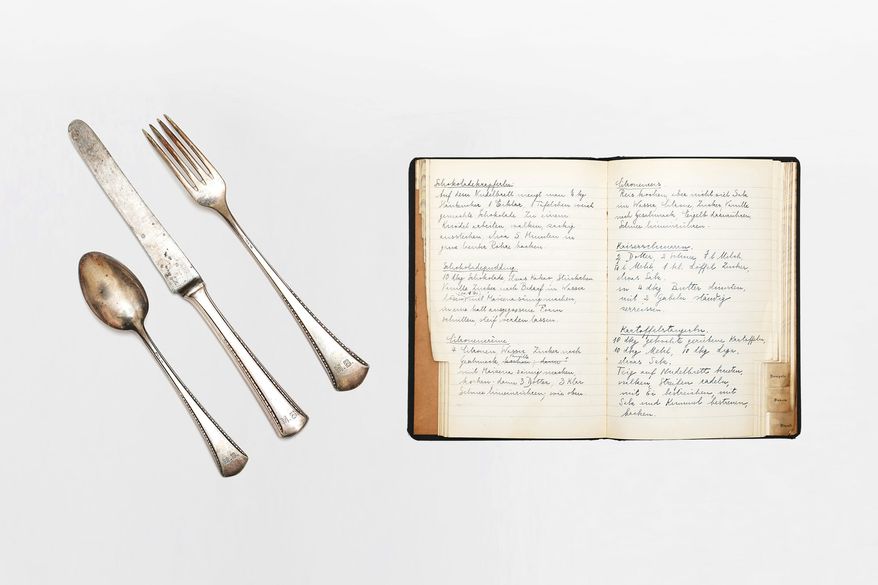 Schokoladekrapferln
Auf dem Nudelbrett mengt man ¼ kg
Staubzucker 1 Eiklar 1 Täfelchen weich
gemachte Schokolade Zu einem
Knödel arbeiten, walken, zackig
ausstechen etwa 5 Minuten in
ganz lauter Rohr backen
Schokoladepudding
10 dkg Schokolade etwas Kakao Stückchen
Vanille Zucker nach Bedarf in Wasser
mit Maizena sämig machen
in eine kalt ausgegossene Form
schütten steif werden lassen.
Citronencrème
4 Citronen Wasser Zucker nach
Geschmack kochen, dann
mit Maizena sämig machen
kochen dann 3 Dotter, 2 Klar
Schnee hineinrühren, wie oben.
Citronenreis
Reis kochen, aber nicht viel Salz
im Wasser Citrone, Zucker Vanille
nach Geschmack Eigelb darunterrühren,
Schnee hineinrühren.
Kaiserschmarrn
2 Dotter, 2 Schnee,
¼ l Milch, 1 kl. Löffel Zucker,
etwas Salz.
in 4 dkg Butter dünsten,
mit 2 Gabeln ständig
zerreissen
Kartoffelstangerln.
10 dkg gekochte geriebene Kartoffeln,
10 dkg Mehl, 10 dkg
etwas Salz.
Teig auf Nudelbrett kneten,
walken, Streifen radeln,
mit Ei bestreichen, mit
Salz und Kümmel bestreuen,
backen.